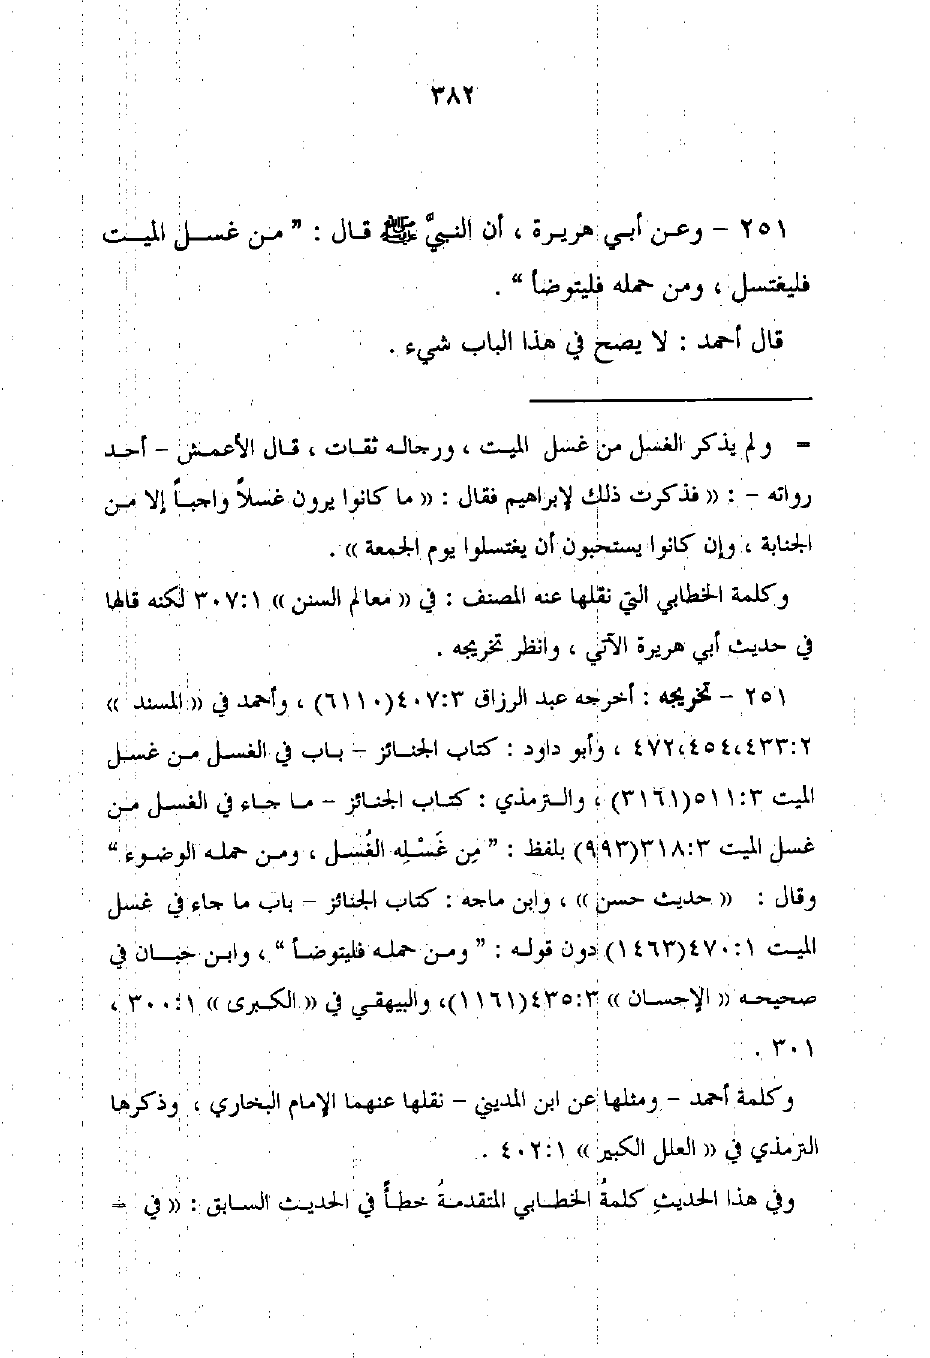 ٣٨٢
٢٥١ - وعن أبي هريرة ، أن النبيَّ ﷺ قال : " من غسل الميت
فليغتسل ، ومن حمله فليتوضأ " .
قال أحمد : لا يصح في هذا الباب شيء .
= ولم يذكر الغسل من غسل الميت ، ورجاله ثقات ، قال الأعمش - أحد
رواته - : « فذكرت ذلك لإبراهيم فقال : « ما كانوا يرون غسلاً واجباً إلا من
الجنابة ، وإن كانوا يستحبون أن يغتسلوا يوم الجمعة » .
وكلمة الخطابي التي نقلها عنه المصنف : في « معالم السنن » ٣٠٧:١ لكنه قالها
في حديث أبي هريرة الآتي ، وانظر تخريجه .
٢٥١ - تخريجه : أخرجه عبد الرزاق ٤٠٧:٣(٦١١٠) ، وأحمد في « المسند »
٤٧٢،٤٥٤،٤٣٣:٢ ، وأبو داود : كتاب الجنائز - باب في الغسل من غسل
الميت ٥١١:٣(٣١٦١) ، والترمذي : كتاب الجنائز - ما جاء في الغسل من
غسل الميت ٣١٨:٣(٩٩٣) بلفظ : " مِن غَسْلِه الغُسل ، ومن حمله الوضوء "
وقال : « حديث حسن » ، وابن ماجه : كتاب الجنائز - باب ما جاء في غسل
الميت ٤٧٠:١(١٤٦٣) دون قوله : " ومن حمله فليتوضأ " ، وابن حبان في
صحيحه « الإحسان » ٤٣٥:٣(١١٦١)، والبيهقي في « الكبرى » ٣٠٠:١ ،
٣٠١ .
وكلمة أحمد - ومثلها عن ابن المديني - نقلها عنهما الإمام البخاري ، وذكرها
الترمذي في « العلل الكبير » ٤٠٢:١ .
وفي هذا الحديثِ كلمةُ الخطابي المتقدمةُ خطأً في الحديث السابق : « في =